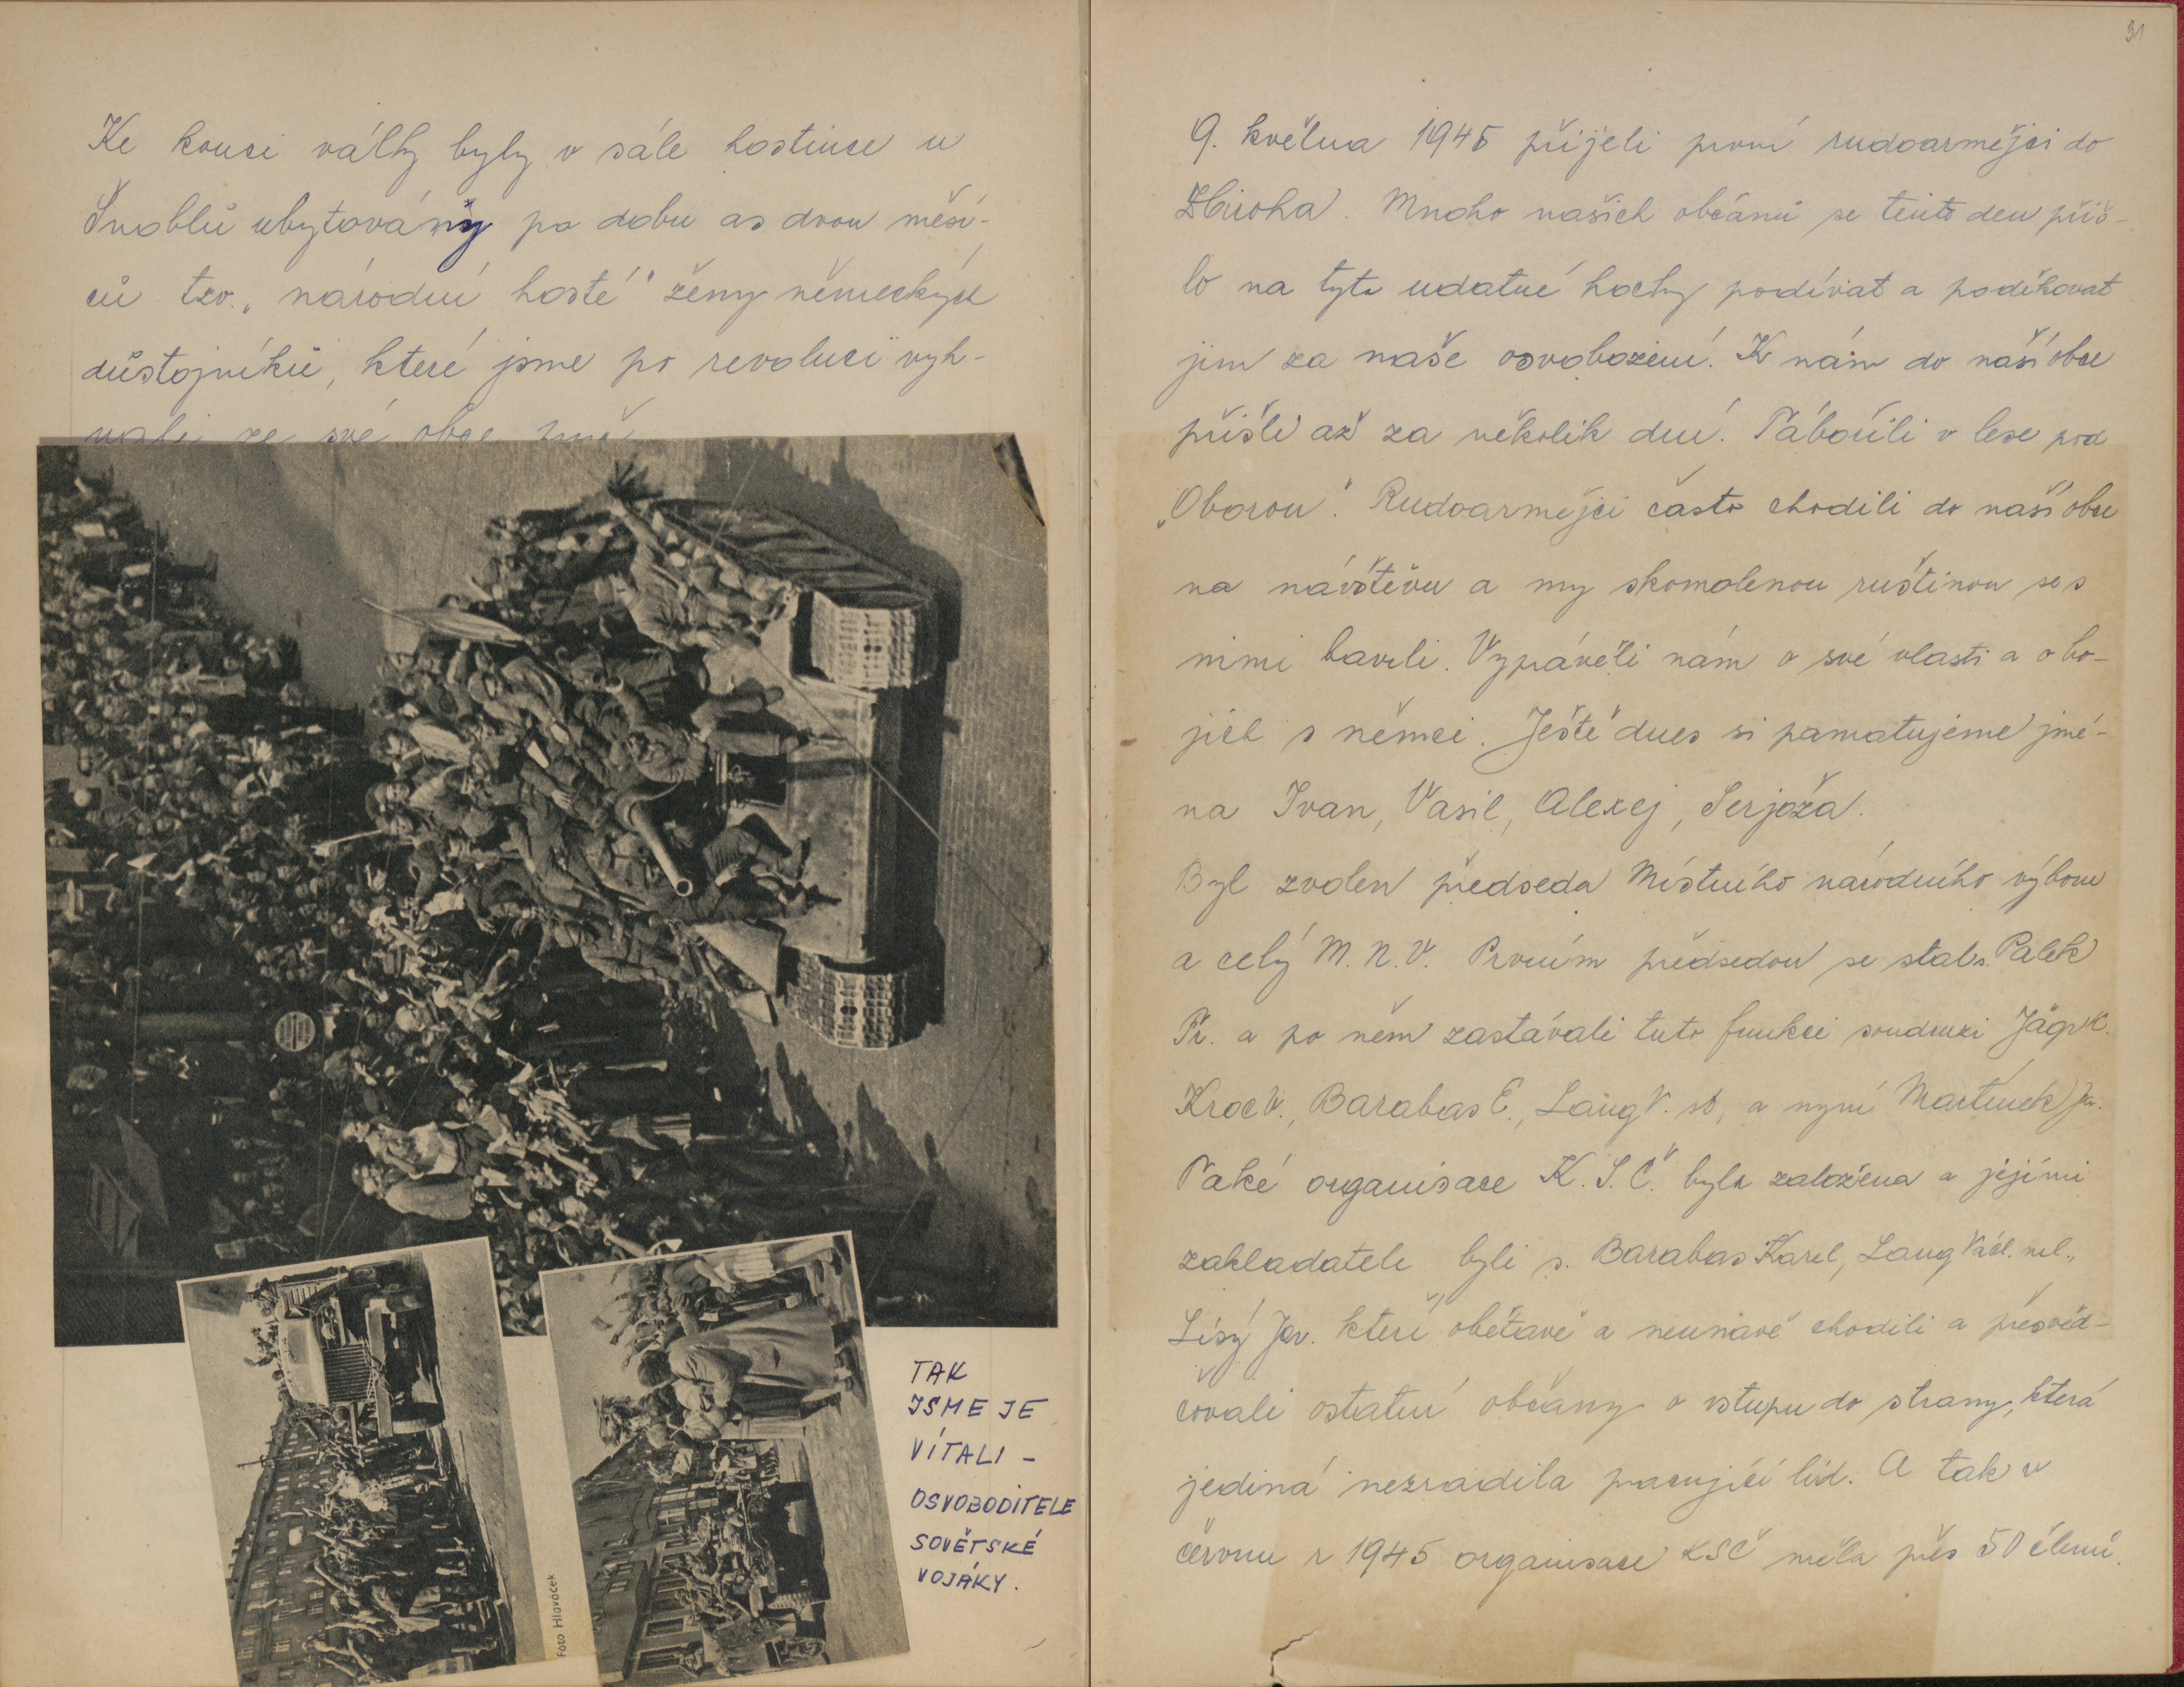 Ke konci války byly v sále hostince u
Šnoblů ubytovány po dobu as dvou měsí-
ců tzv. „národní hosté" ženy německých
důstojníků, které jsme po revoluci vyh-
ze své obce
Foto Hlaváček
TAK
JSME JE
VÍTALI -
OSVOBODITELE
SOVĚTSKÉ
VOJÁKY.
31
9. května 1945 přijeli první rudoarmějci do
Zbiroha. Mnoho našich občánů se tento den přiš-
lo na tyto udatné hochy podívat a poděkovat
jim za naše osvobození. K nám do naší obce
přišli až za několik dní. Tábořili v lese pod
„Oborou". Rudoarmějci často chodili do naší obce
na návštěvu a my skomolenou ruštinou se s
nimi bavili. Vyprávěli nám o své vlasti a o bo-
jích s němci. Ještě dnes si pamatujeme jmé-
na Ivan, Vasil, Alexej, Serjoža.
Byl zvolen předseda Místního národního výboru
a celý M.N.V. Prvním předsedou se stal s. Palek
Fr. a po něm zastávali tuto funkci soudruzi Jägr K.
Kroc V., Barabas E., Lang V. st, a nyní Martínek Ja.
Také organisace K.S.Č. byla založena a jejími
zakladateli byli s. Barabas Karel, Lang Václ. ml.,
Lisý Jar. kteří obětavě a neunavě chodili a přesvěd-
čovali ostatní občany o vstupu do strany, která
jediná nezradila pracující lid. A tak v
červnu r 1945 organisace KSČ měla přes 50 členů.